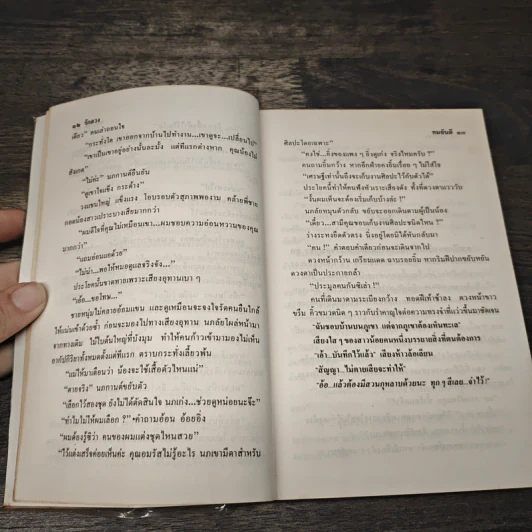 ๑๒ รัดดวง
เดียว” คนเล่าถอนใจ
“กระทั่งโต เขาออกจากบ้านไปทำงาน...เขาดูจะ...เปลี่ยนไป”
“เขาเป็นเขาอยู่อย่างนั้นละมั้ง แต่ที่แรกต่างหาก คุณน้องไม่
สังเกต”
“ไม่ค่ะ” นภกานต์ยืนยัน
“ดูเขาใจแข็ง กระด้าง”
วงแขนใหญ่ แข็งแรง โอบรอบตัวสุภาพพองาม คล้ายพี่ชาย
กอดน้องสาวเปราะบางเสียมากกว่า
“ผมดีใจที่คุณไม่เหมือนเขา...ผมชอบความอ่อนหวานของคุณ
มากกว่า”
“แถมอ่อนแอด้วย”
“ไม่น่า...พอให้ผมดูแลจริงจัง...”
ประโยคนั้นขาดหายเพราะเสียงอุทานเบา ๆ
“เอ้อ...ขอโทษ...”
ชายหนุ่มไม่คลายอ้อมแขน และดูเหมือนจะจงใจรัดคนยืนใกล้
ให้แน่นเข้าด้วยซ้ำ ก่อนจะมองไปทางเสียงอุทาน นภลัยโผล่หน้ามา
จากทางเดิน ไม้ใบในหมู่ใหญ่ที่บังมุม ทำให้คนก้าวเข้ามามองไม่เห็น
อากัปกิริยาทั้งหมดตั้งแต่ทีแรก ตราบกระทั่งเลี้ยวพ้น
“แม่ให้มาเตือนว่า น้องจะใช้เสื้อตัวไหนแน่”
“ตายจริง” นภกานต์ขยับตัว
“เลือกไว้สองชุด ยังไม่ได้ตัดสินใจ นภเก่ง...ช่วยดูหน่อยนะจ๊ะ”
“ทำไมไม่ให้ผมเลือก ?” คำถามอ้อน อ้อยอิ่ง
“ผมต้องรู้ซีว่า คนของผมแต่งชุดไหนสวย”
“ไว้แต่งเสร็จค่อยเห็นค่ะ คุณอมรัสไม่รู้อะไร นภเขามีตาสำหรับ
ทมยันตี ๑๓
ศิลปะโดยเฉพาะ”
“คงใช่...ยิ่งของแพง ๆ ยิ่งดูเก่ง จริงไหมครับ ?”
คนถามยิ้มกว้าง หากอีกฝ่ายคงยิ้มเรื่อย ๆ ไม่ใส่ใจ
“เศรษฐีเท่านั้นถึงจะเก็บงานศิลปะไว้กับตัวได้”
ประโยคนี้ทำให้คนฟังหัวเราะเสียงดัง ทั้งที่ดวงตาแวววับ
“งั้นผมเห็นจะต้องเริ่มเก็บบ้างล่ะ !”
นภลัยหมุนตัวกลับ ขยับจะออกเดินตามผู้เป็นน้อง
“เดี๋ยว...สามีคุณชอบเก็บงานศิลปะชนิดไหน !”
ร่างระหงยืดตัวตรง นิ่งอยู่โดยมิได้หันกลับมา
“คน !” คำตอบคำเดียวก่อนจะเดินจากไป
ดวงหน้ากร้าน เกรียมแดด ฉาบรอยยิ้ม หากริมฝีปากขยับหยัน
ดวงตาเป็นประกายกล้า
“ประมูลคนกันซิเล่า !”
คนที่เดินมาตามระเบียงกว้าง ทอดฝีเท้าช้าลง ดวงหน้าขาว
ขรึม คิ้วขมวดน้อย ๆ ราวกับว่าคาญใจต่อความทรงจำที่แล่วขึ้นมาชัดเจน
“ฉันชอบบ้านบนภูเขา แต่จากภูเขาต้องเห็นทะเล”
เสียงใส ๆ ของสาวน้อยคนหนึ่งบรรยายสิ่งที่ตนต้องการ
“เอ้า...บันทึกไว้แล้ว” เสียงห้าวล้อเลียน
“สัญญา...ไม่ตายเสียจะทำให้”
“อ้อ...แล้วต้องมีสวนกุหลาบด้วยนะ ทุก ๆ สีเลย...จำไว้!”